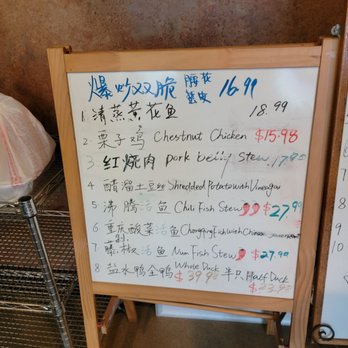 爆炒双脆 腰花 16.99
1 清蒸黄花鱼 18.99
2. 栗子鸡 Chestnut Chicken $15.98
3 红烧肉 pork belly stew 17.95
4 醋溜土豆丝 Shredded Potato with Vinegar
5 沸腾活鱼 Chili Fish Stew $27.9
6 重庆酸菜活鱼 Chongqing Fish with Chinese
7 藤椒活鱼 Num Fish Stew $27.90
8 盐水鸭全鸭 Whole Duck $39.95 半只 Half Duck